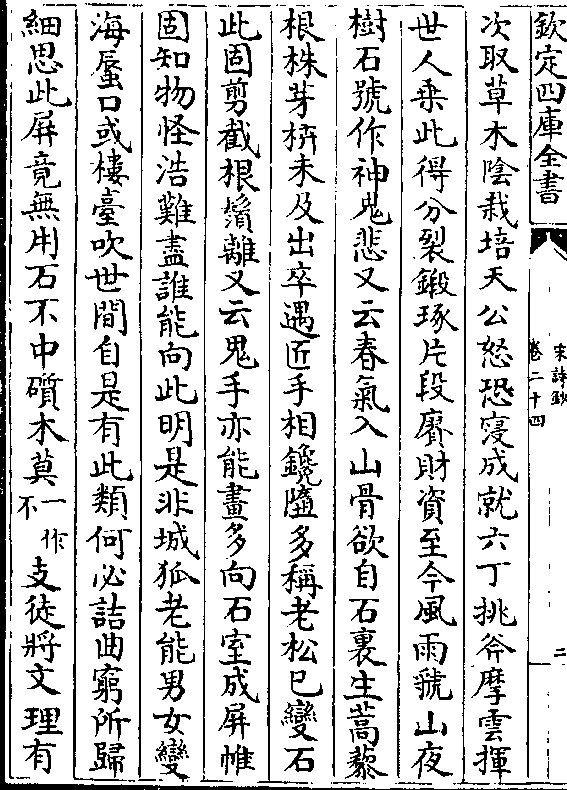 欽定四庫全書
宋詩鈔
卷二十四
二
次取草木陰栽培天公怒恐寖成就六丁挑斧摩雲揮
世人乗此得分裂鍛琢片段賡財資至今風雨號山夜
樹石號作神鬼悲又云春氣入山骨欲自石裏生蒿藜
根株芽枿未及出卒遇匠手相鑱隨多稱老松已變石
此固剪截根鬚離又云鬼手亦能畫多向石室成屏帷
固知物怪浩難盡誰能向此明是非城狐老能男女變
海蜃口或樓臺吹世間自是有此類何必詰曲窮所歸
細思此屏竟無用石不中礩木莫一作不支徒將文理有